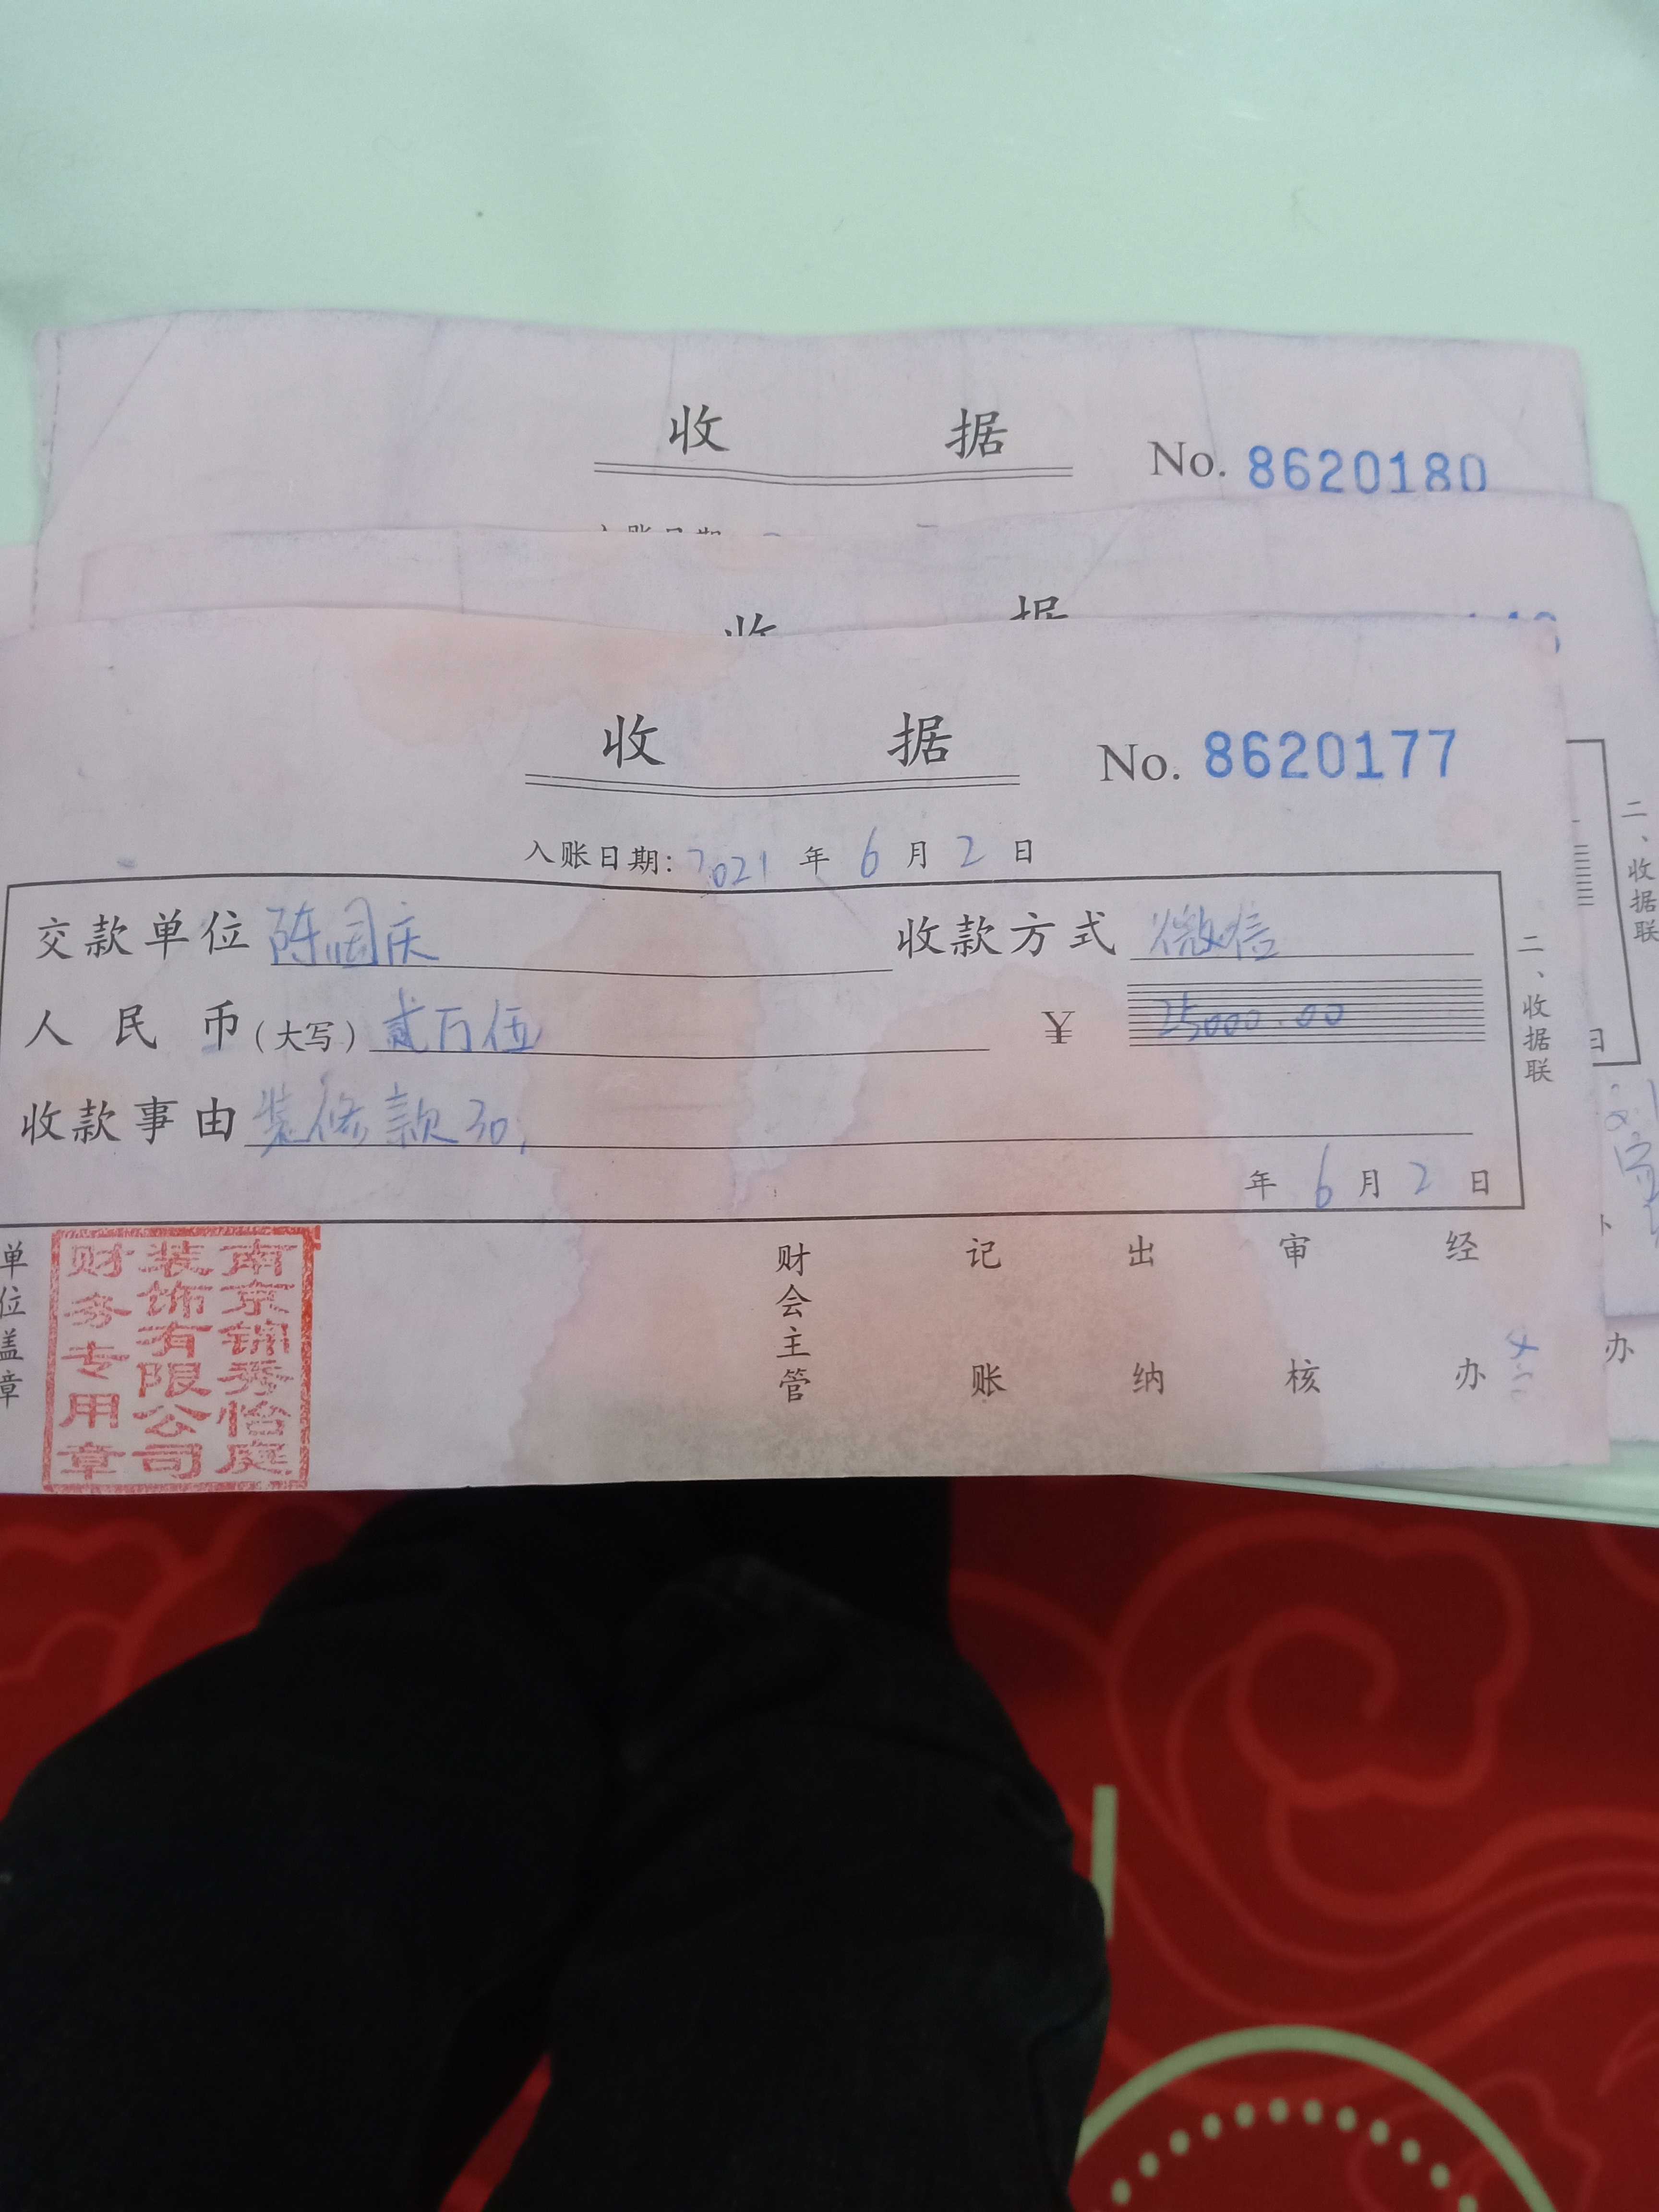 收 据
No. 8620180
入账日期:
收 据
收 据
No. 8620177
入账日期: 2021 年 6 月 2 日
交款单位 陈国庆 收款方式 微信
人民币(大写) 贰万伍 ¥ 25000.00
收款事由 装修款
年 6 月 2 日
二、收据联
二、收据联
日
单位盖章
财会主管
记账
出纳
审核
经办
办
南京锦秀怡庭
装饰有限公司
财务专用章